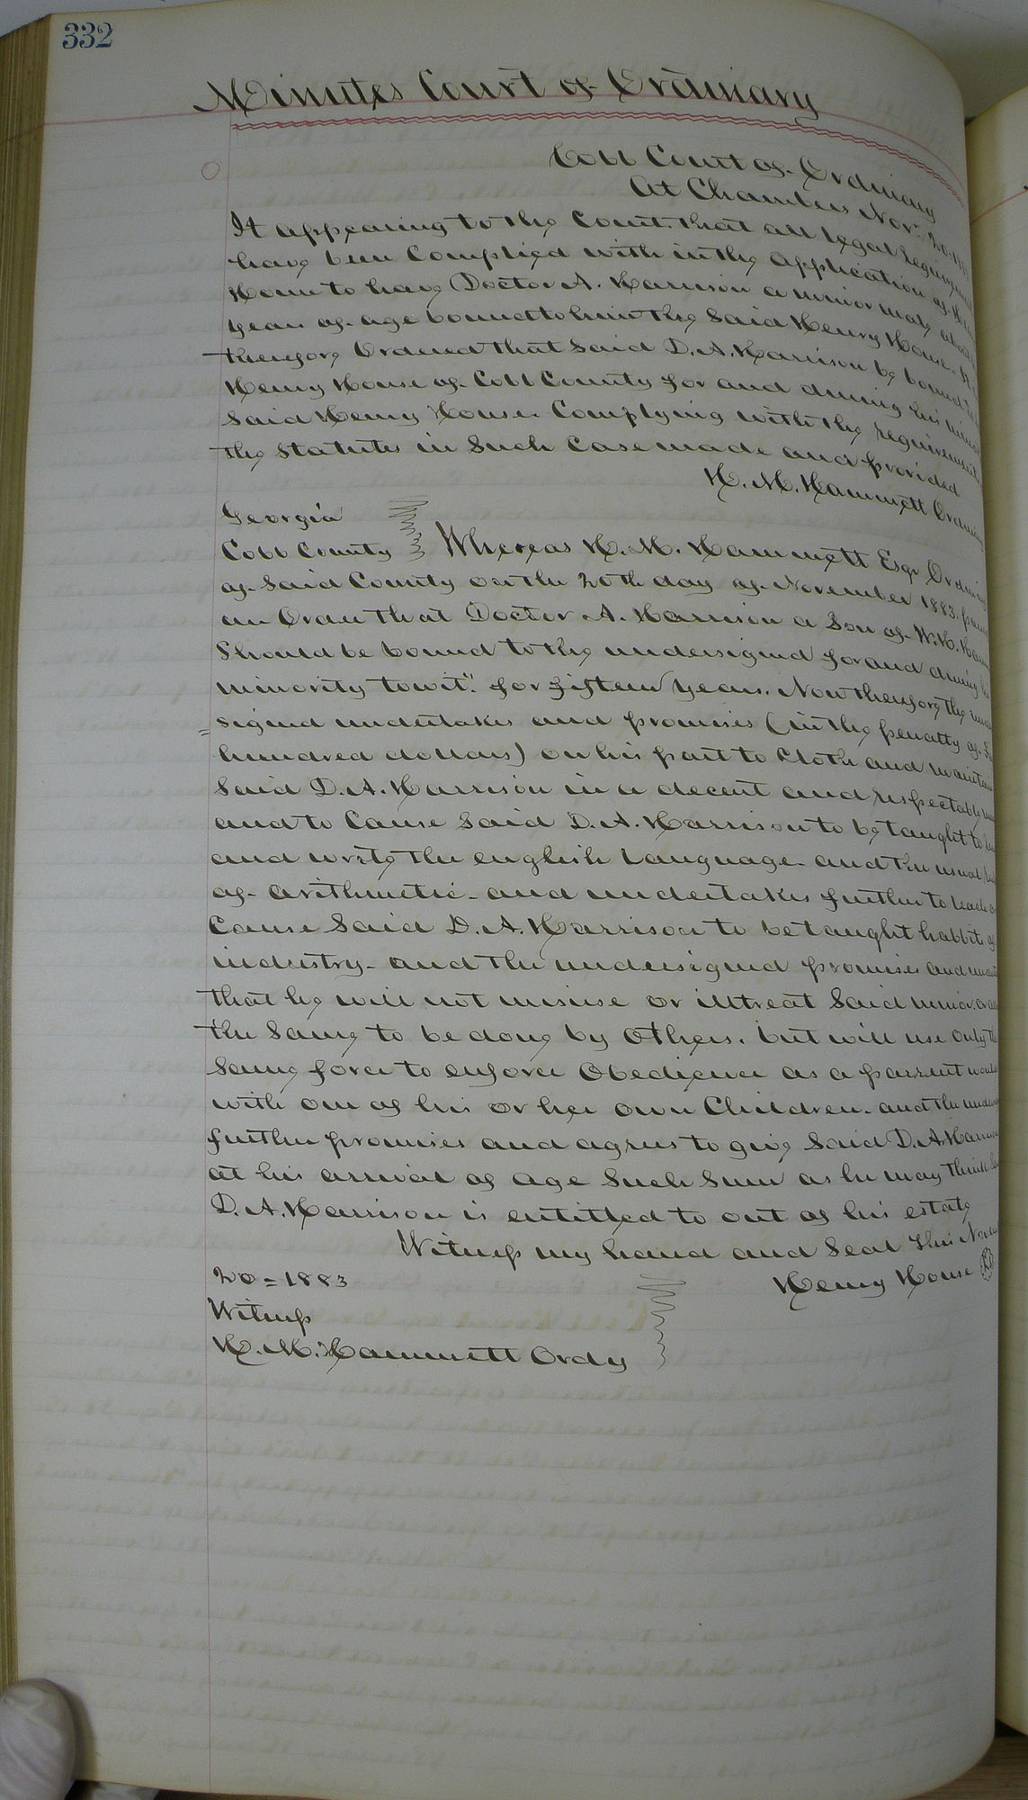 332
Minutes Court of Ordinary
Cobb Court of Ordinary
At Chambers Nov. 20
It appearing to the Court that all legal
have been Complied with in the application of
House to have Doctor A. Harrison a minor male
years of age bound to him the Said Henry House.
therefore Ordered that Said D. A. Harrison be bound
Henry House of Cobb County for and during his
Said Henry House Complying with the requirements
the Statutes in Such Case made and provided
H. M. Hammett
Georgia
Cobb County Whereas H. M. Hammett Esqr
of Said County on the 20th day of November 1883.
an Order that Doctor A. Harrison a Son of W. H.
Should be bound to the undersigned for and during
minority towit." for fifteen years. Now therefore the
=signed undertakes and promises (in the penalty of
hundred dollars) on his part to Cloth and
Said D. A. Harrison in a decent and respectable
and to Cause Said D. A. Harrison to be taught to
and write the english Language and the usual
of arithmetic and undertakes further to
Cause Said D. A. Harrison to be taught habbits of
industry and the undersigned promises and
that he will not misuse or illtreat Said minor or
the Same to be done by Others. but will use only
Same force to enforce Obedience as a parrent would
with one of his or her own Children. and the
further promises and agrees to give Said D. A.
at his arrival of age Such Sum as he may think
D. A. Harrison is entitled to out of his estate
Witness my hand and Seal this
20=1883 Henry House
Witness
H. M. Hammett Ordy